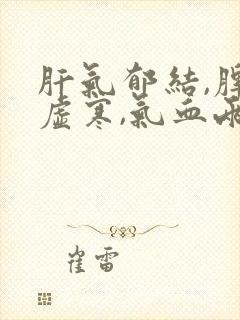 肝氣郁結,
虛寒,氣血
崔雷